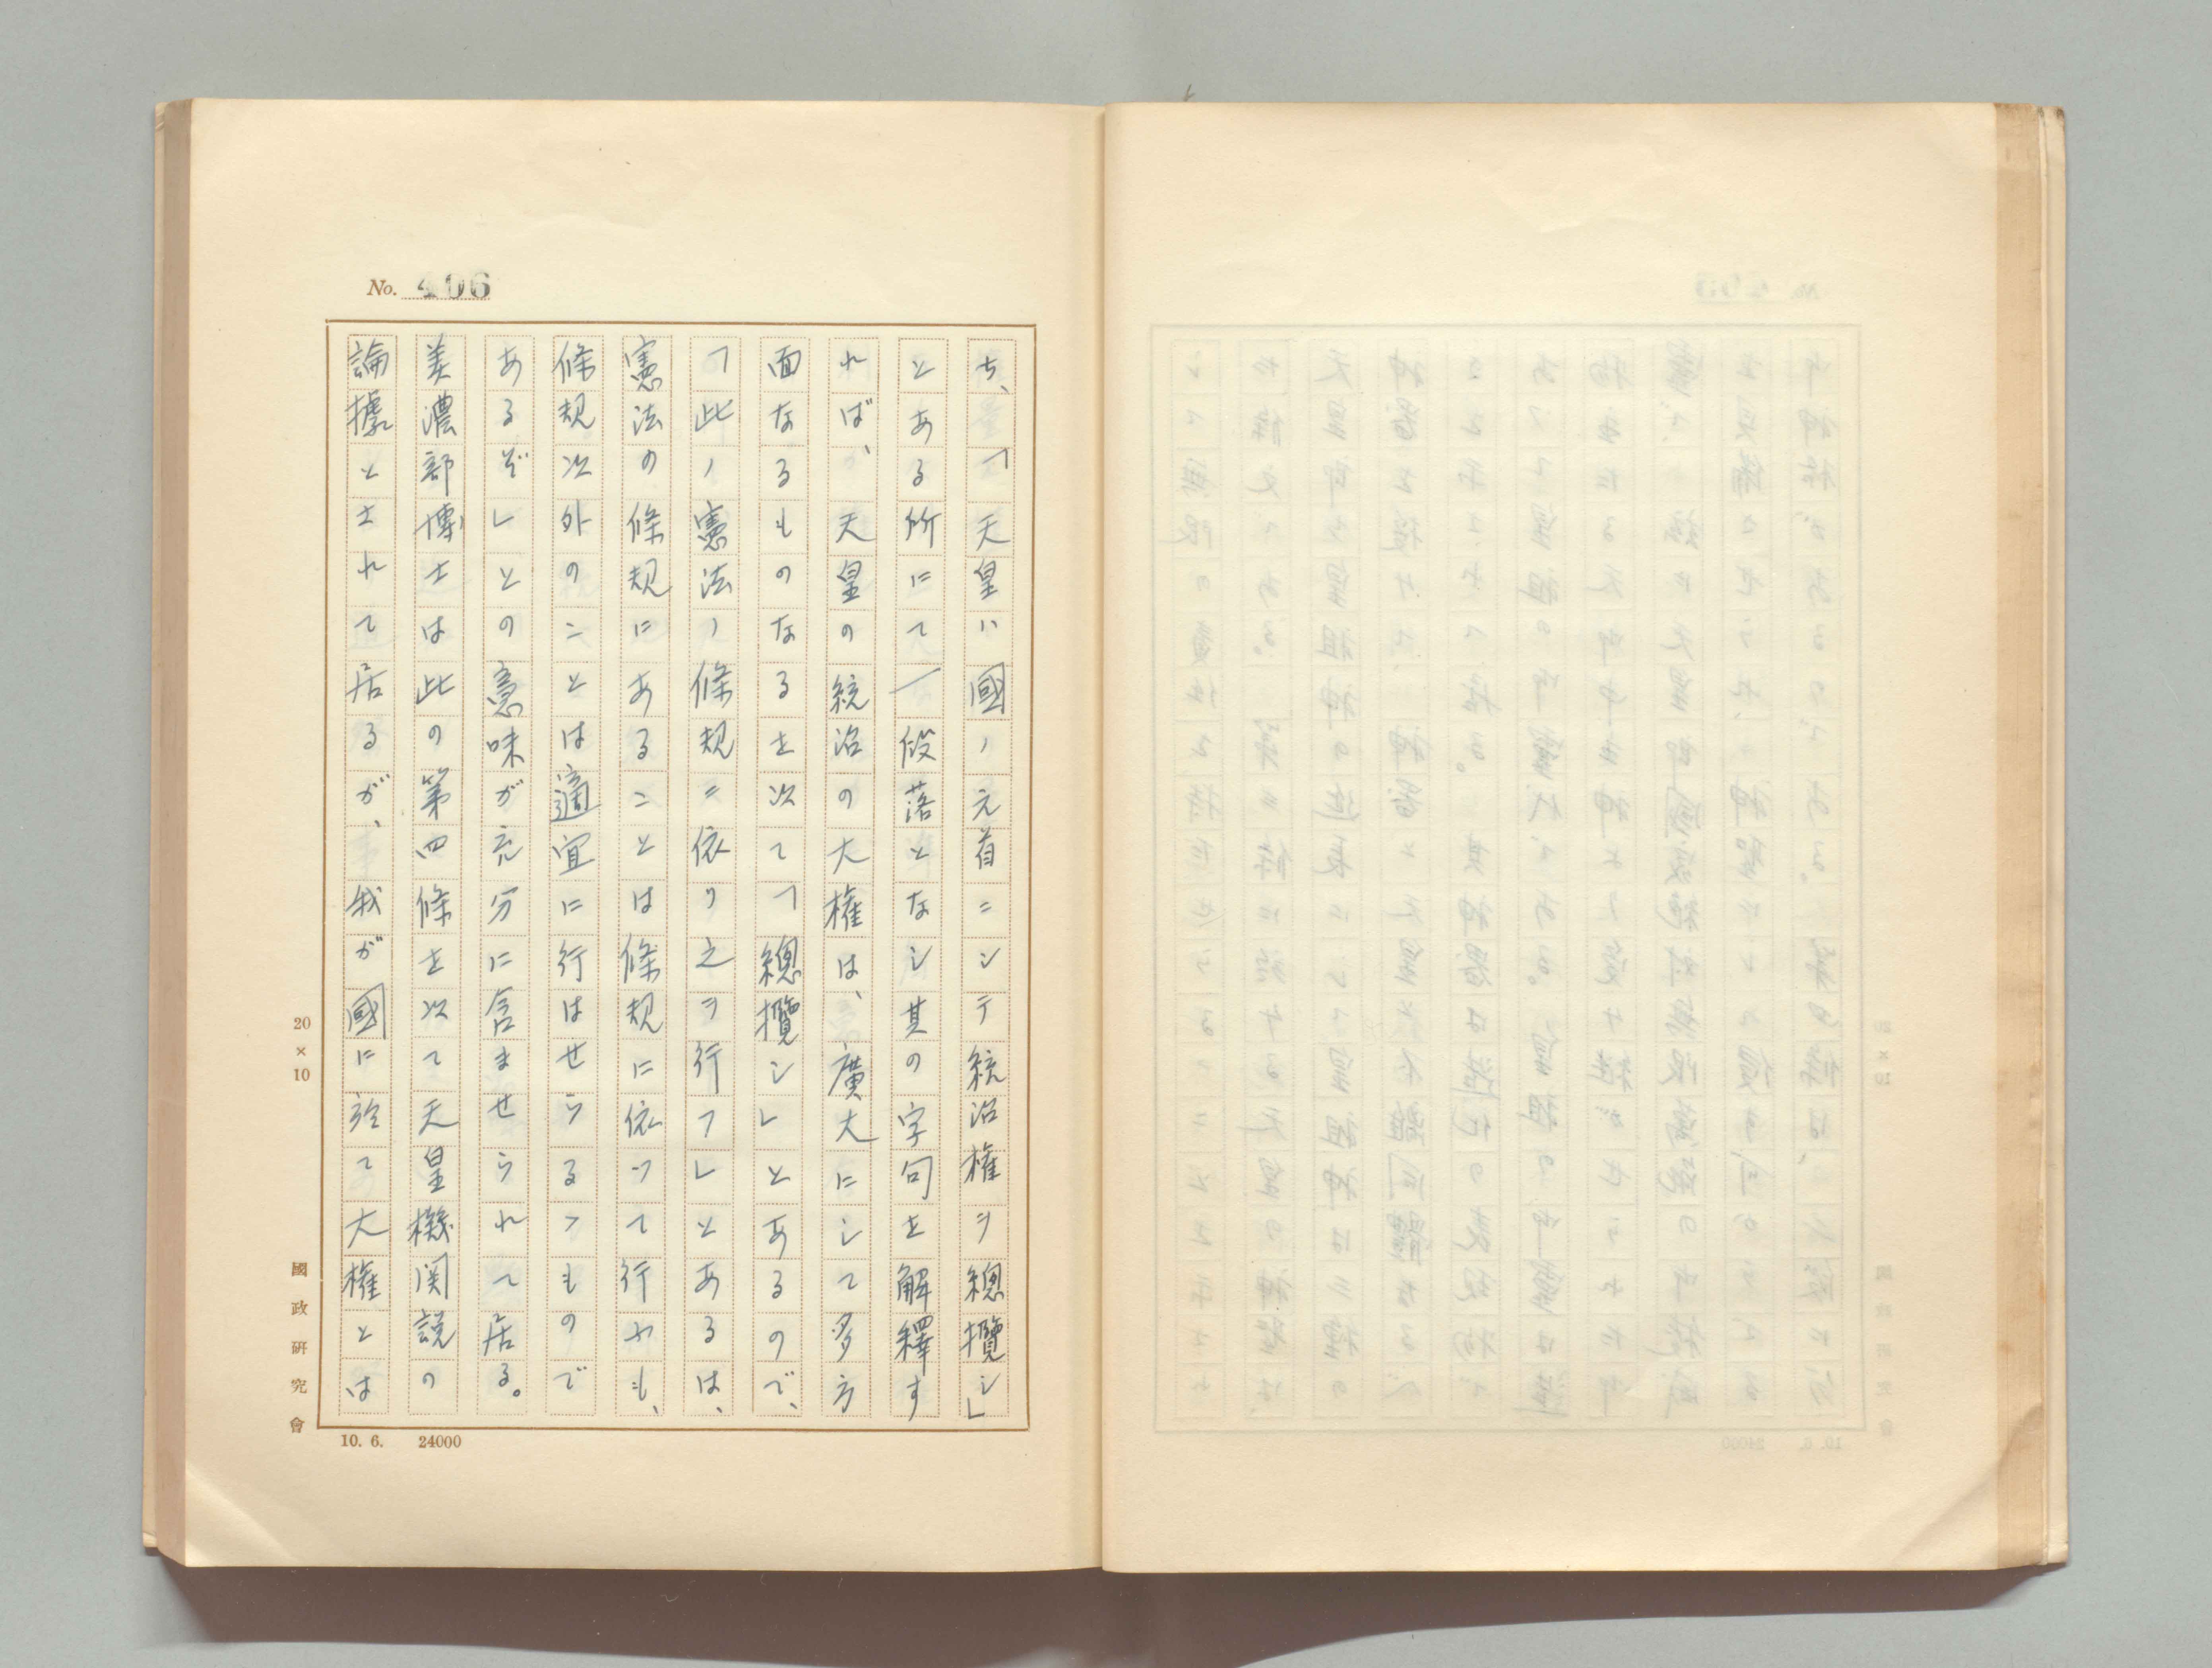 No. 406
ち、「天皇ハ國ノ元首ニシテ統治権ヲ總攬シ」
とある所にて一段落となし其の字句を解釋す
れば、天皇の統治の大権は、廣大にして多方
面なるものなるを以て「總攬シ」とあるので、
「此ノ憲法ノ條規ニ依リ之ヲ行フ」とあるは、
憲法の條規にあることは條規に依つて行ふも、
條規以外のことは適宜に行はせらるゝもので
あるぞ」との意味が充分に含ませられて居る。
美濃部博士は此の第四條を以て天皇機関説の
論據とせられて居るが、我が國に於て大権とは
20×10
國政研究會
10. 6. 24000